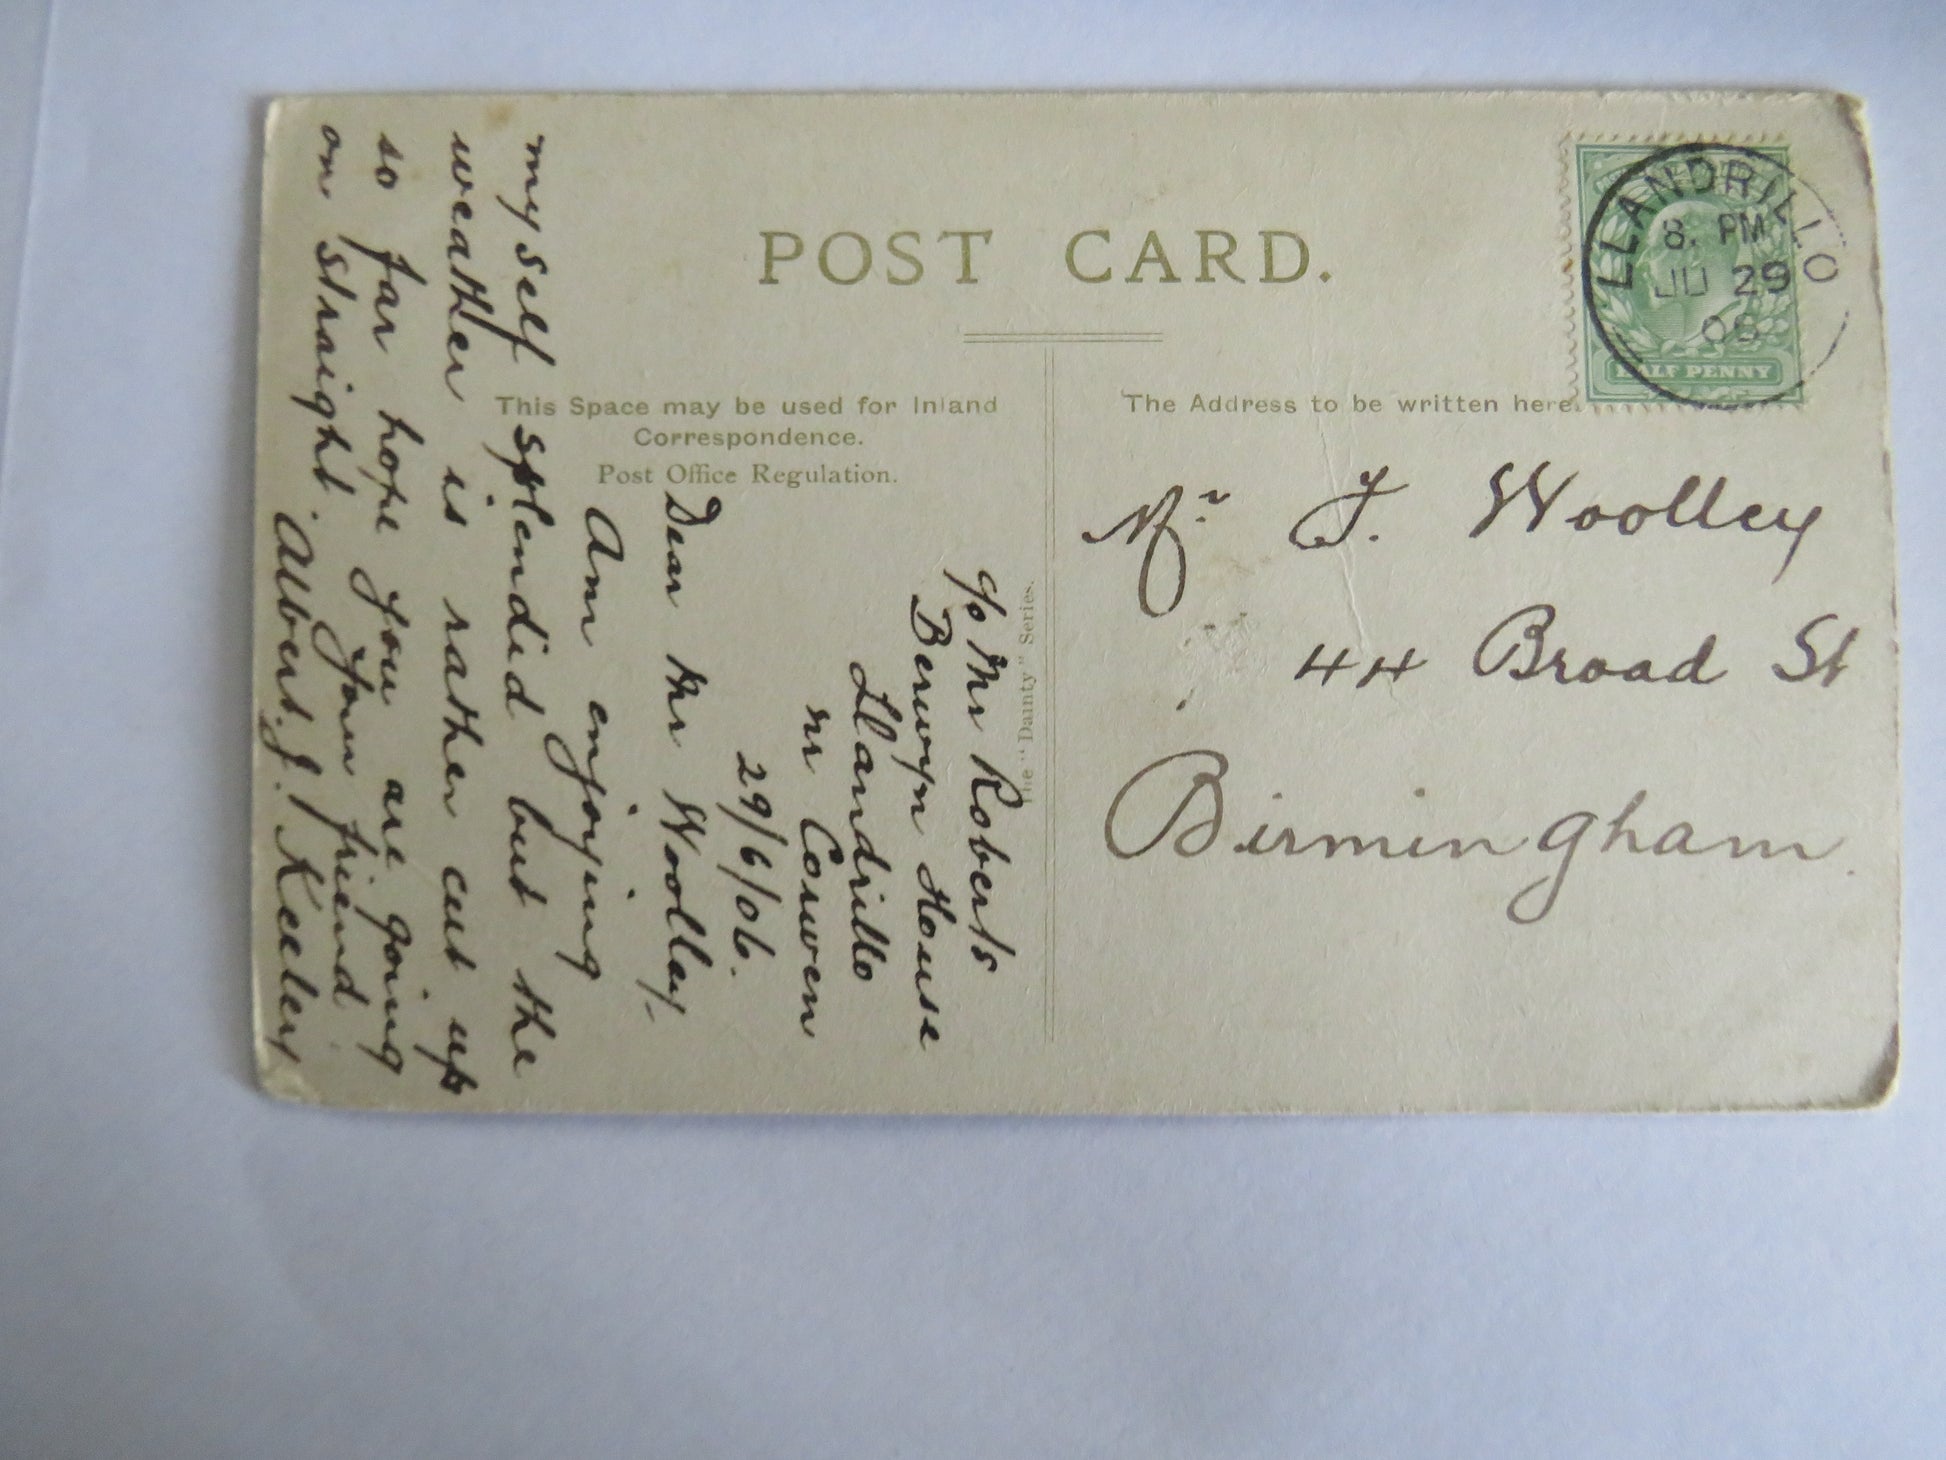 POST CARD.
LLANDRILLO
8. PM
JU 29
06
HALF PENNY
This Space may be used for Inland
Correspondence.
Post Office Regulation.
The Address to be written here.
The "Dainty" Series.
Mr. J. Woolley
44 Broad St
Birmingham.
c/o Mr Roberts
Berwyn House
Llandrillo
nr Corwen
29/6/06.
Dear Mr Woolley,
Am enjoying
my self splendid but the
weather is rather cut up
so far hope you are going
on straight. Your friend
Albert. J. Keeley